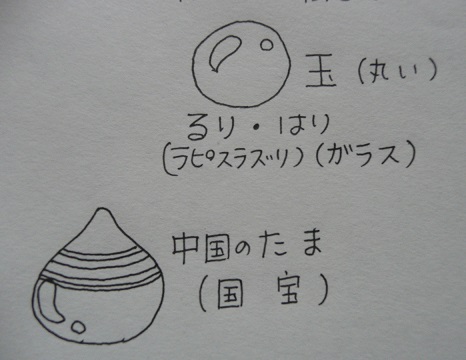 玉(丸い)
るり・はり
(ラピスラズリ)(ガラス)
中国のたま
(国宝)